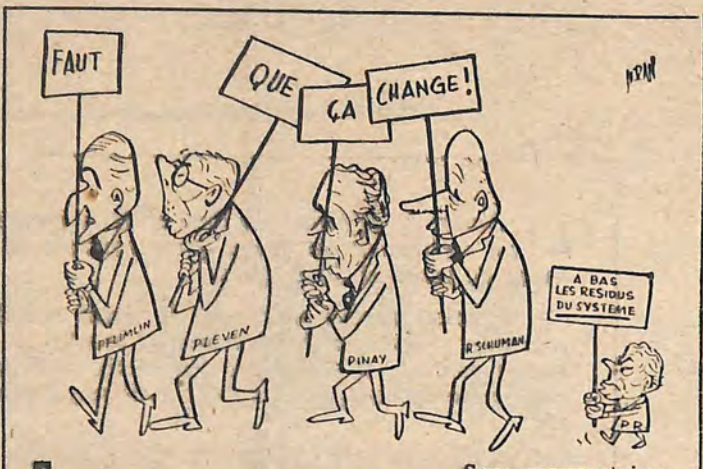 FAUT
QUE
ÇA
CHANGE!
PFLIMLIN
PLEVEN
PINAY
R.SCHUMAN
A BAS
LES RESIDUS
DU SYSTEME
P.R